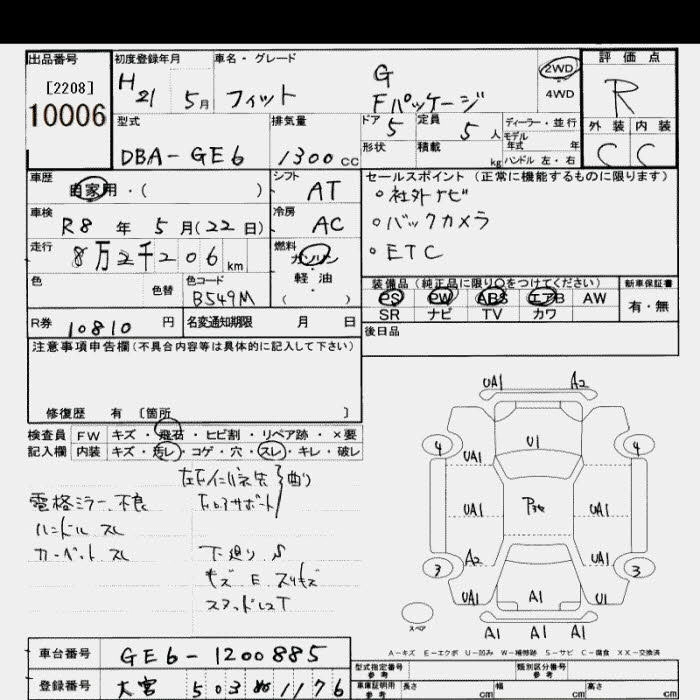 出品番号
[2208]
10006
初度登録年月
H 21 5月
車名・グレード
フィット
G
Fパッケージ
2WD
4WD
評価点
R
外装 内装
C C
型式
DBA-GE6
排気量
1300 cc
ドア 5
定員 5 人
形状
積載 kg
ディーラー・並行
モデル年式 年
ハンドル 左・右
車歴
自家用・( )
シフト
AT
セールスポイント (正常に機能するものに限ります)
○社外ナビ
○バックカメラ
○ETC
車検
R8 年 5月(22日)
冷房
AC
走行
8万2千206 km
燃料
ガソリン
・
軽油
( )
色
色替
色コード
B549M
装備品 (純正品に限り○をつけてください)
PS PW ABS エアB AW
SR ナビ TV カワ
新車保証書
有・無
R券 10810 円
名変通知期限 月 日
後日品
注意事項申告欄(不具合内容等は具体的に記入して下さい)
修復歴 有 〔箇所 〕
検査員 FW キズ・飛石・ヒビ割・リペア跡・×要
記入欄 内装 キズ・汚レ・コゲ・穴・スレ・キレ・破レ
曲り
電格ミラー不良
ハンドル スレ
カーペット スレ
下廻り S
キズ E スリキズ
スタッドレスT
UA1 A2
4 U1 4
UA1
UA1 UA1
A2 UA1
3 3
UA1 A1 U1
A1 A1 A1
スペア
A-キズ E-エクボ U-凹み W-補修跡 S-サビ C-腐食 XX-交換済
車台番号
GE6-1200885
登録番号
大宮 503 ぬ 1176
型式指定番号
参考
類別区分番号
参考
車庫証明用
参考
長さ cm
幅 cm
高さ cm